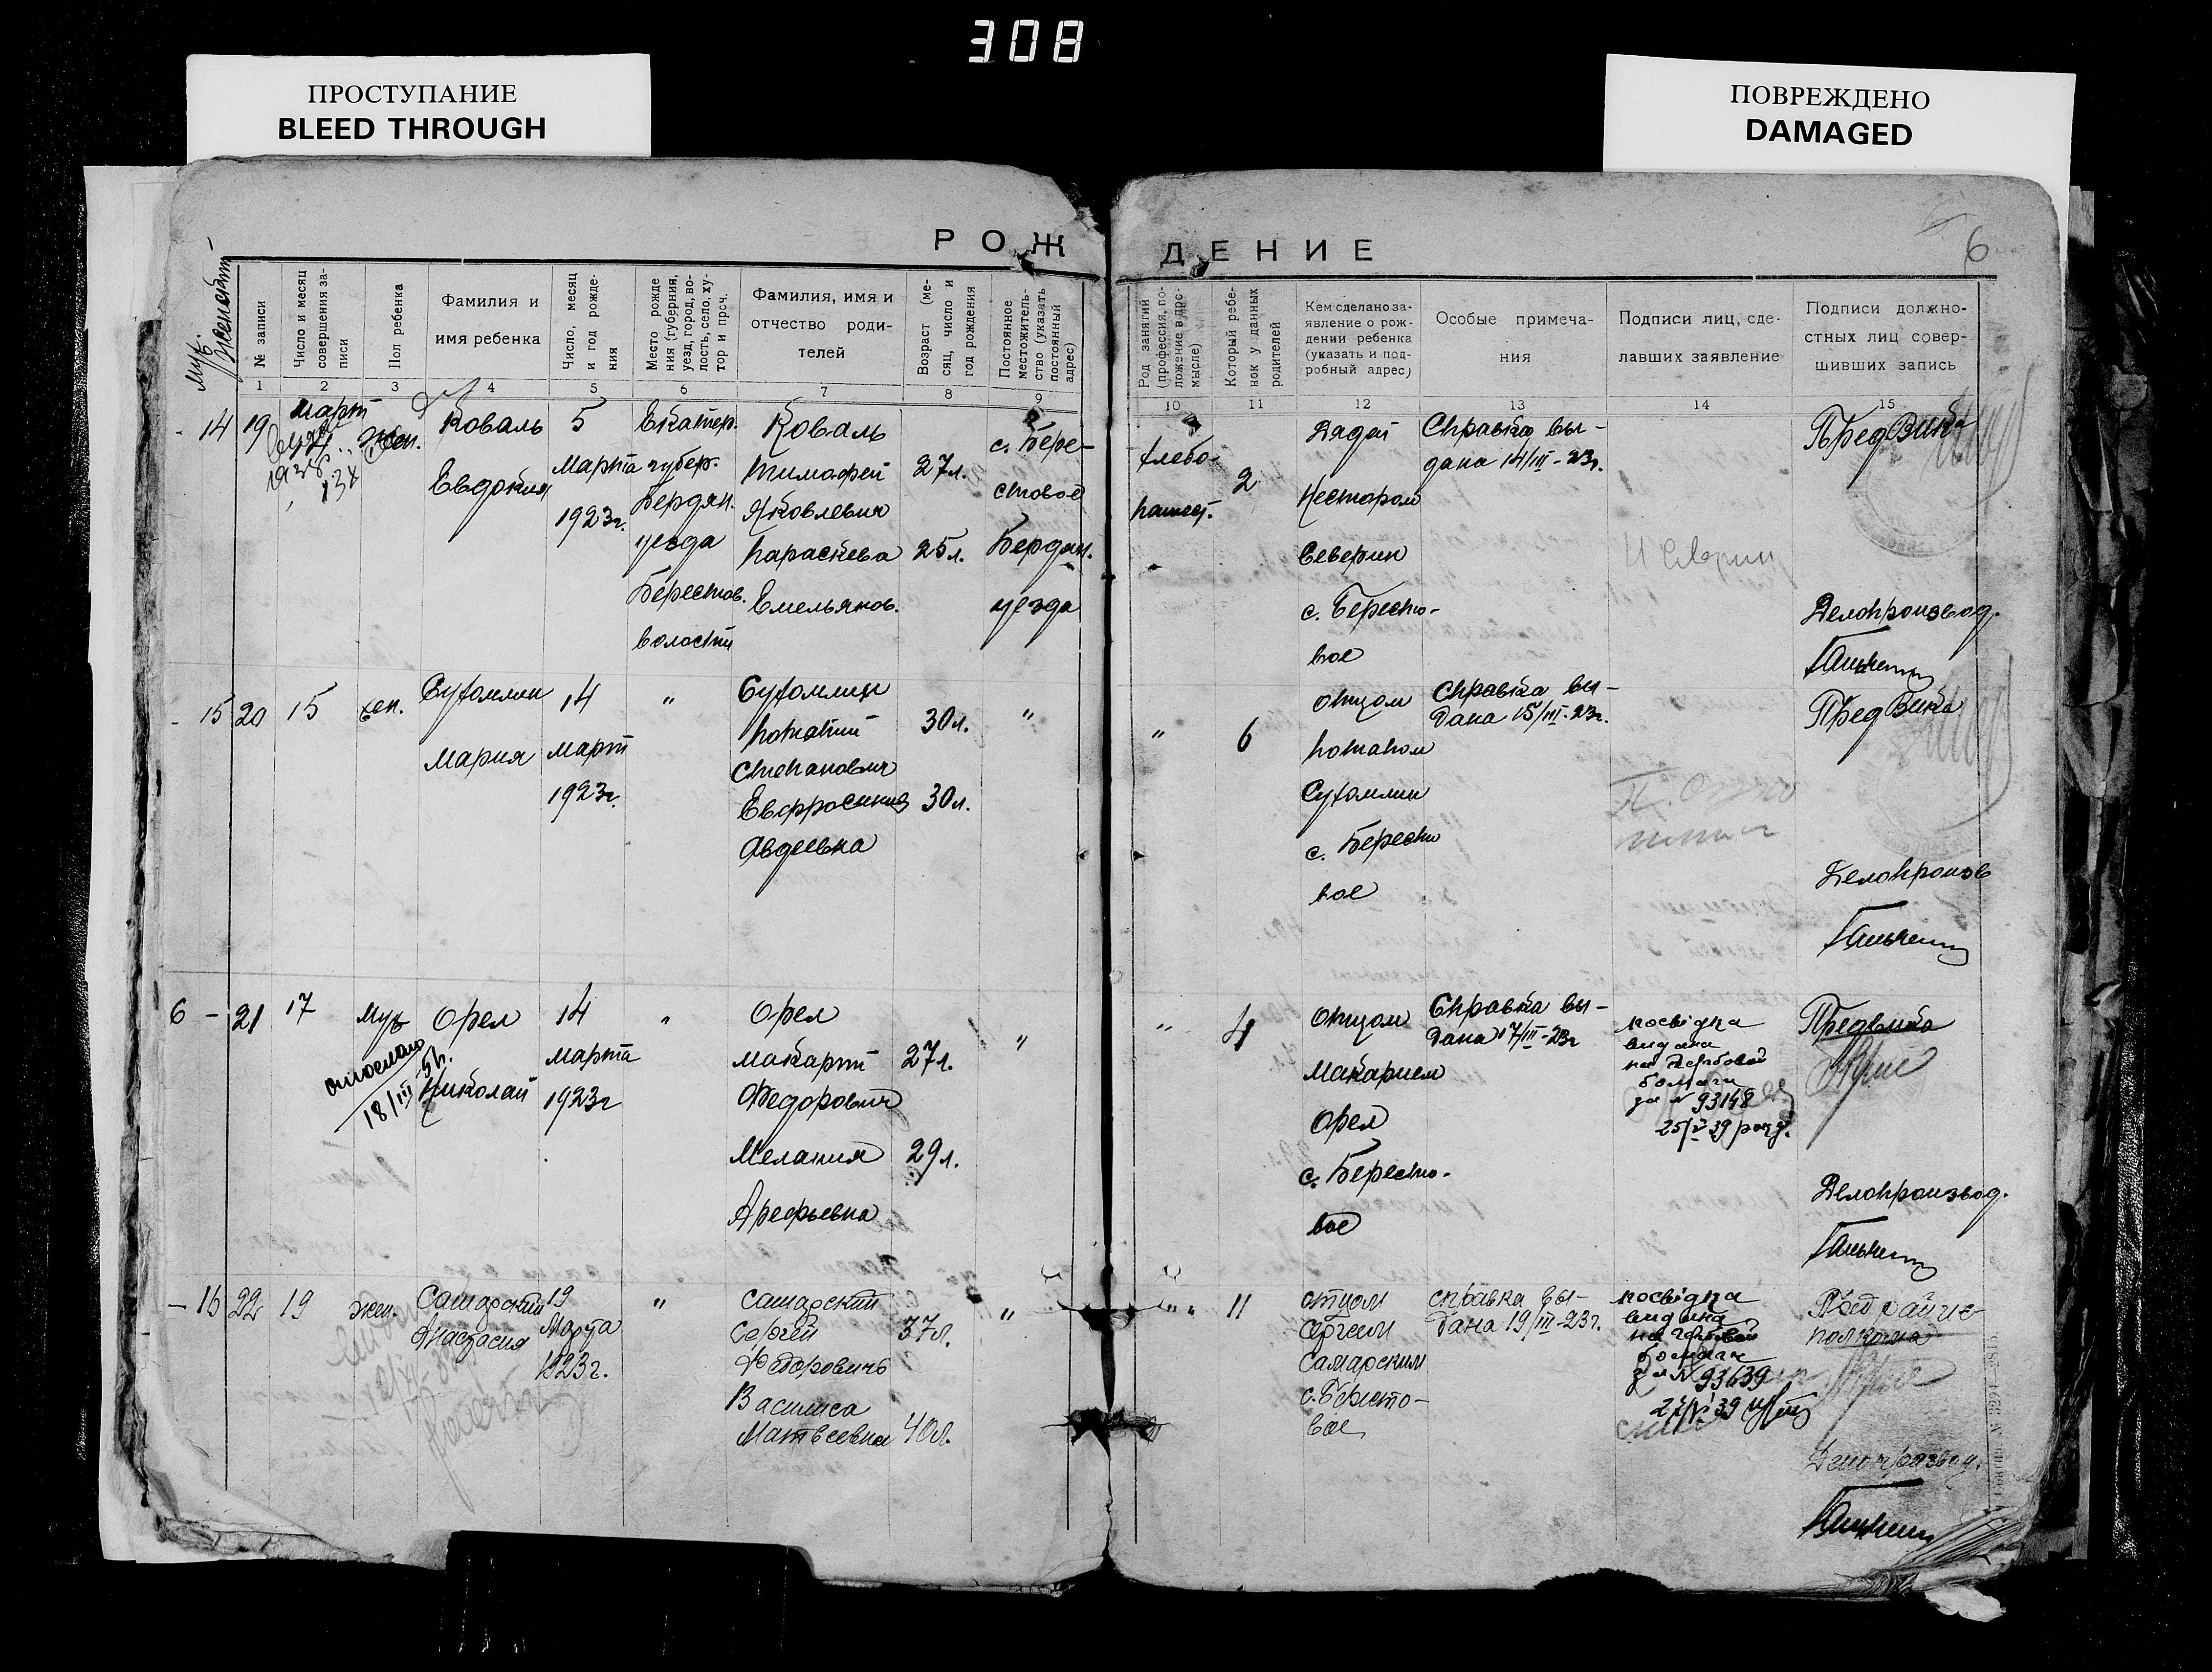 308
ПРОСТУПАНИЕ
BLEED THROUGH
ПОВРЕЖДЕНО
DAMAGED
РОЖДЕНИЕ
6
муж.
№ записи
Число и месяц совершения записи
Пол ребенка
Фамилия и
имя ребенка
Число, месяц и год рождения
Место рождения (губерния, уезд, город, волость, село, хутор и проч.
Фамилия, имя и
отчество роди-
телей
Возраст (месяц, число и год рождения
Постоянное местожительство (указать постоянный адрес)
Род занятий (профессия, положение в промысле)
Который ребенок у данных родителей
Кем сделано за-
явление о рож-
дении ребенка
(указать и под-
робный адрес)
Особые примеча-
ния
Подписи лиц, сде-
лавших заявление
Подписи должно-
стных лиц совер-
шивших запись
1 2 3 4 5 6 7 8 9 10 11 12 13 14 15
14
19
март
жен.
Коваль
Евдокия
5
Марта
1923г.
Екатер.
губер.
Бердян.
уезда
Берестов.
волости
Коваль
Тимофей
Яковлевич
Параскева
Емельянов.
27л.
25л.
с. Бере-
стовое
Бердян.
уезда
хлебо-
пашест.
2
Дядей
Нестором
Северин
с. Бересто-
вое
Справка вы-
дана 14/III-23г.
Пред Вика
Делопроизвод.
15
20
15
жен.
Сухомлин
Мария
14
март
1923г.
"
Сухомлин
Потапий
Степанович
Евфросиния
Авдеевна
30л.
30л.
"
"
6
Отцом
Потапом
Сухомлин
с. Бересто
вое
Справка вы-
дана 15/III-23г.
Пред Вика
Делопроизв
6 -
21
17
Муж
отослано
18/III-51г.
Орел
Николай
14
марта
1923г
"
Орел
Макарий
Федорович
Мелания
Арефьевна
27л.
29л.
"
"
4
Отцом
Макарием
Орел
с. Бересто-
вое
Справка вы-
дана 17/III-23г
посвідка
видана
на гербовой
бомаги
за № 93148
25/V 39 року.
Предвика
Делопроизвод.
- 16
22
19
жен.
Самарский
Анастасия
19
Марта
1923г.
"
Самарский
Сергей
Федоровичъ
Василиса
Матвеевна
37л.
40л.
"
" "
11
отцом
Сергеем
Самарским
с. Бересто-
вое
справка вы-
дана 19/III-23г.
посвідка
видана
на гербовой
бомаги
за № 93639
Делопроизвод.